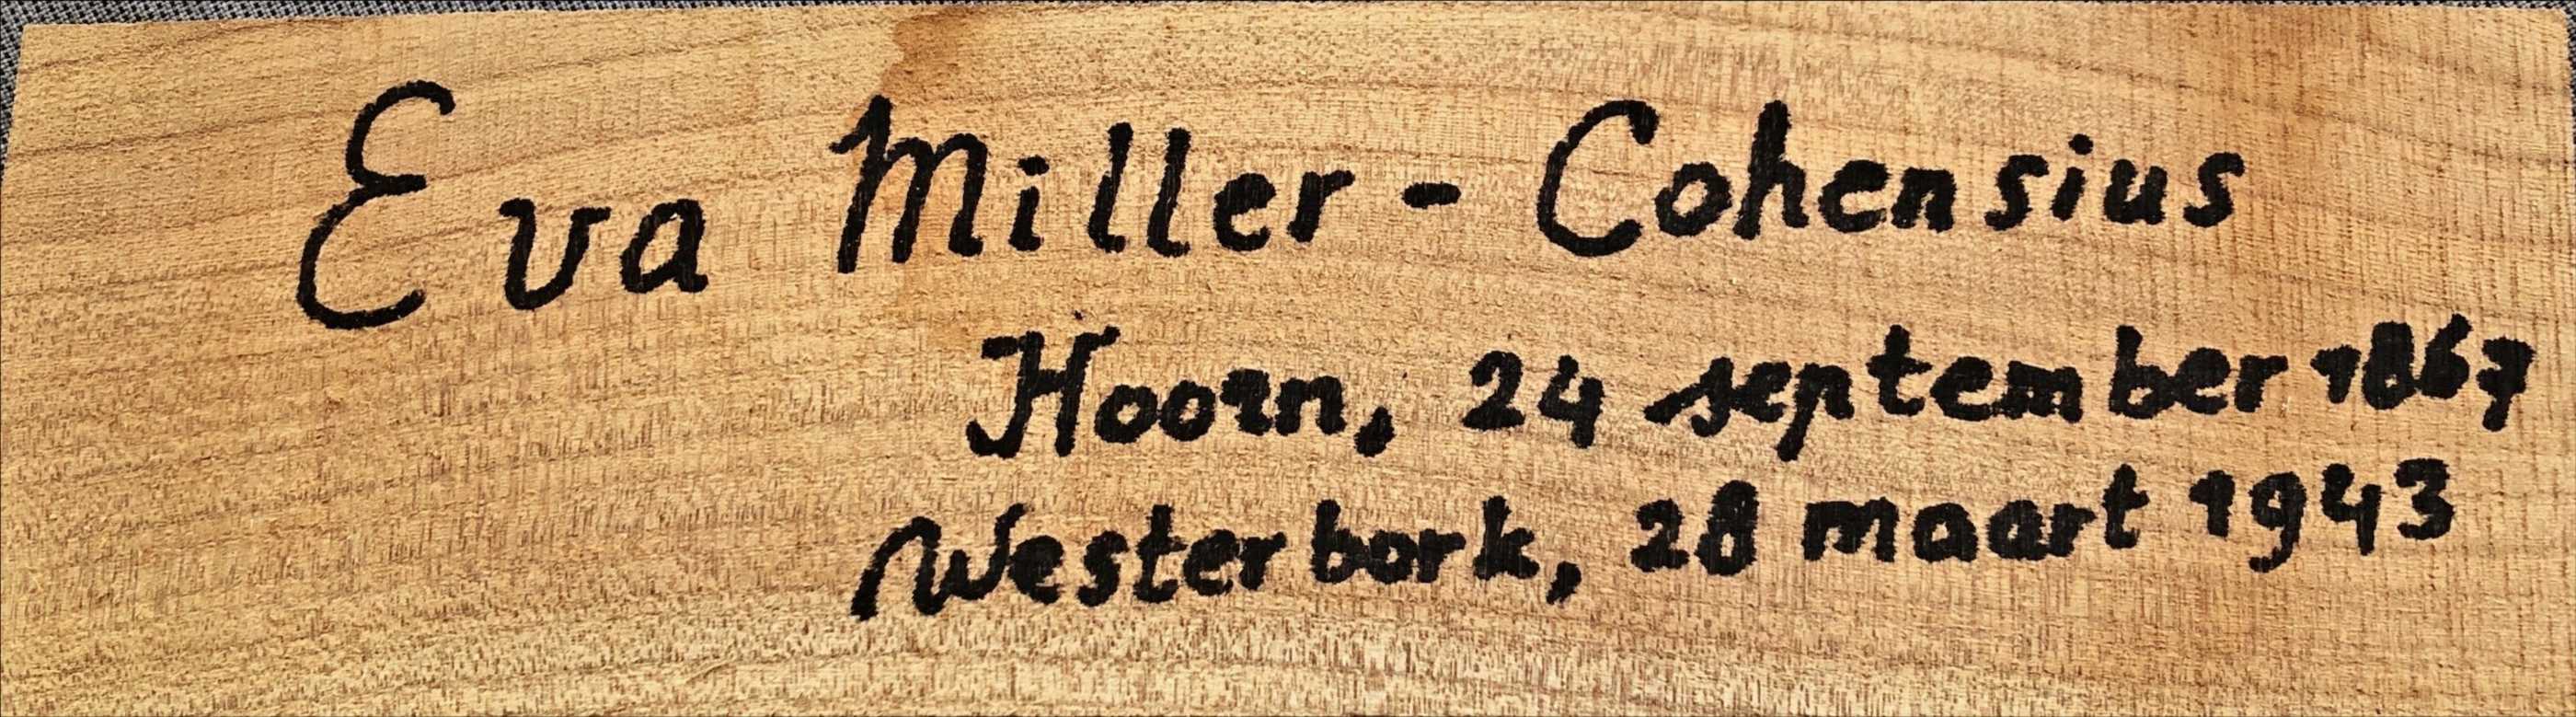 Eva Miller - Cohensius
Hoorn, 24 september 1867
Westerbork, 28 maart 1943